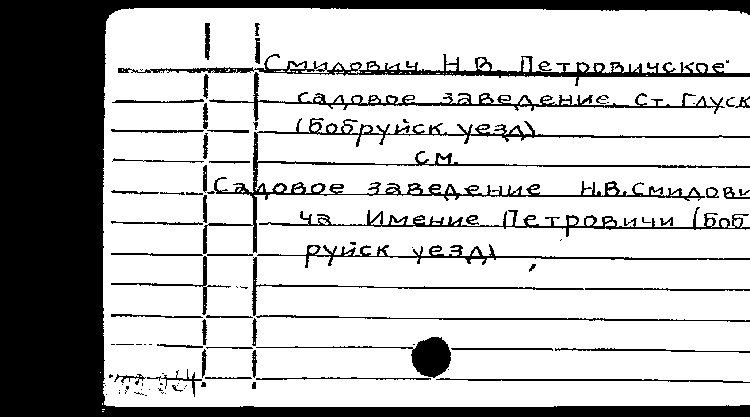 Смидович Н.В. Петровичское
садовое заведение. ст. Глуск
(Бобруйск. уезд)
см.
Садовое заведение Н.В.Смидови
ча Имение Петровичи (Боб
руйск уезд)